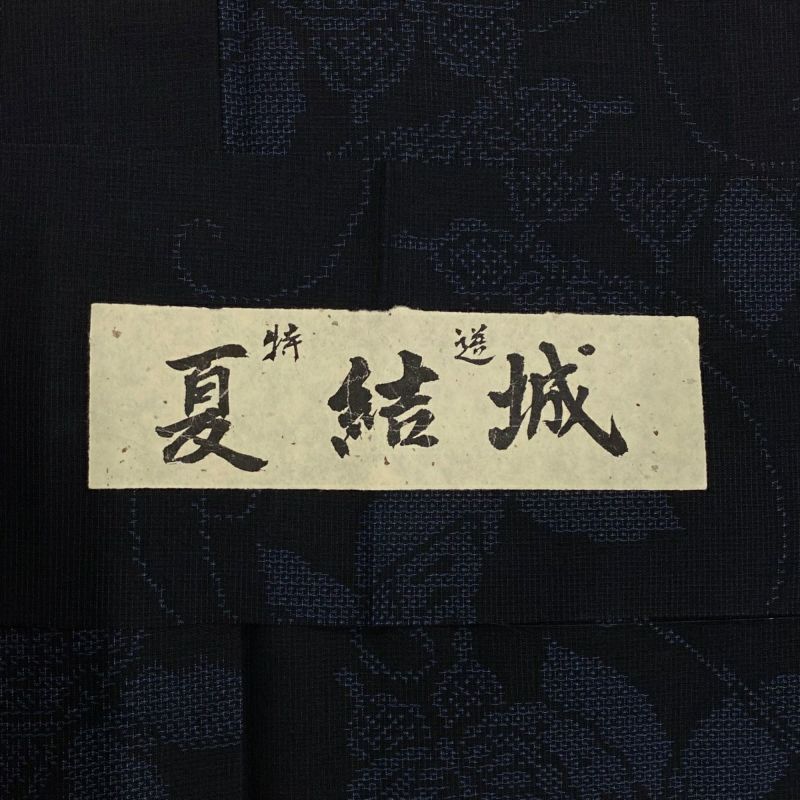 特選
夏結城